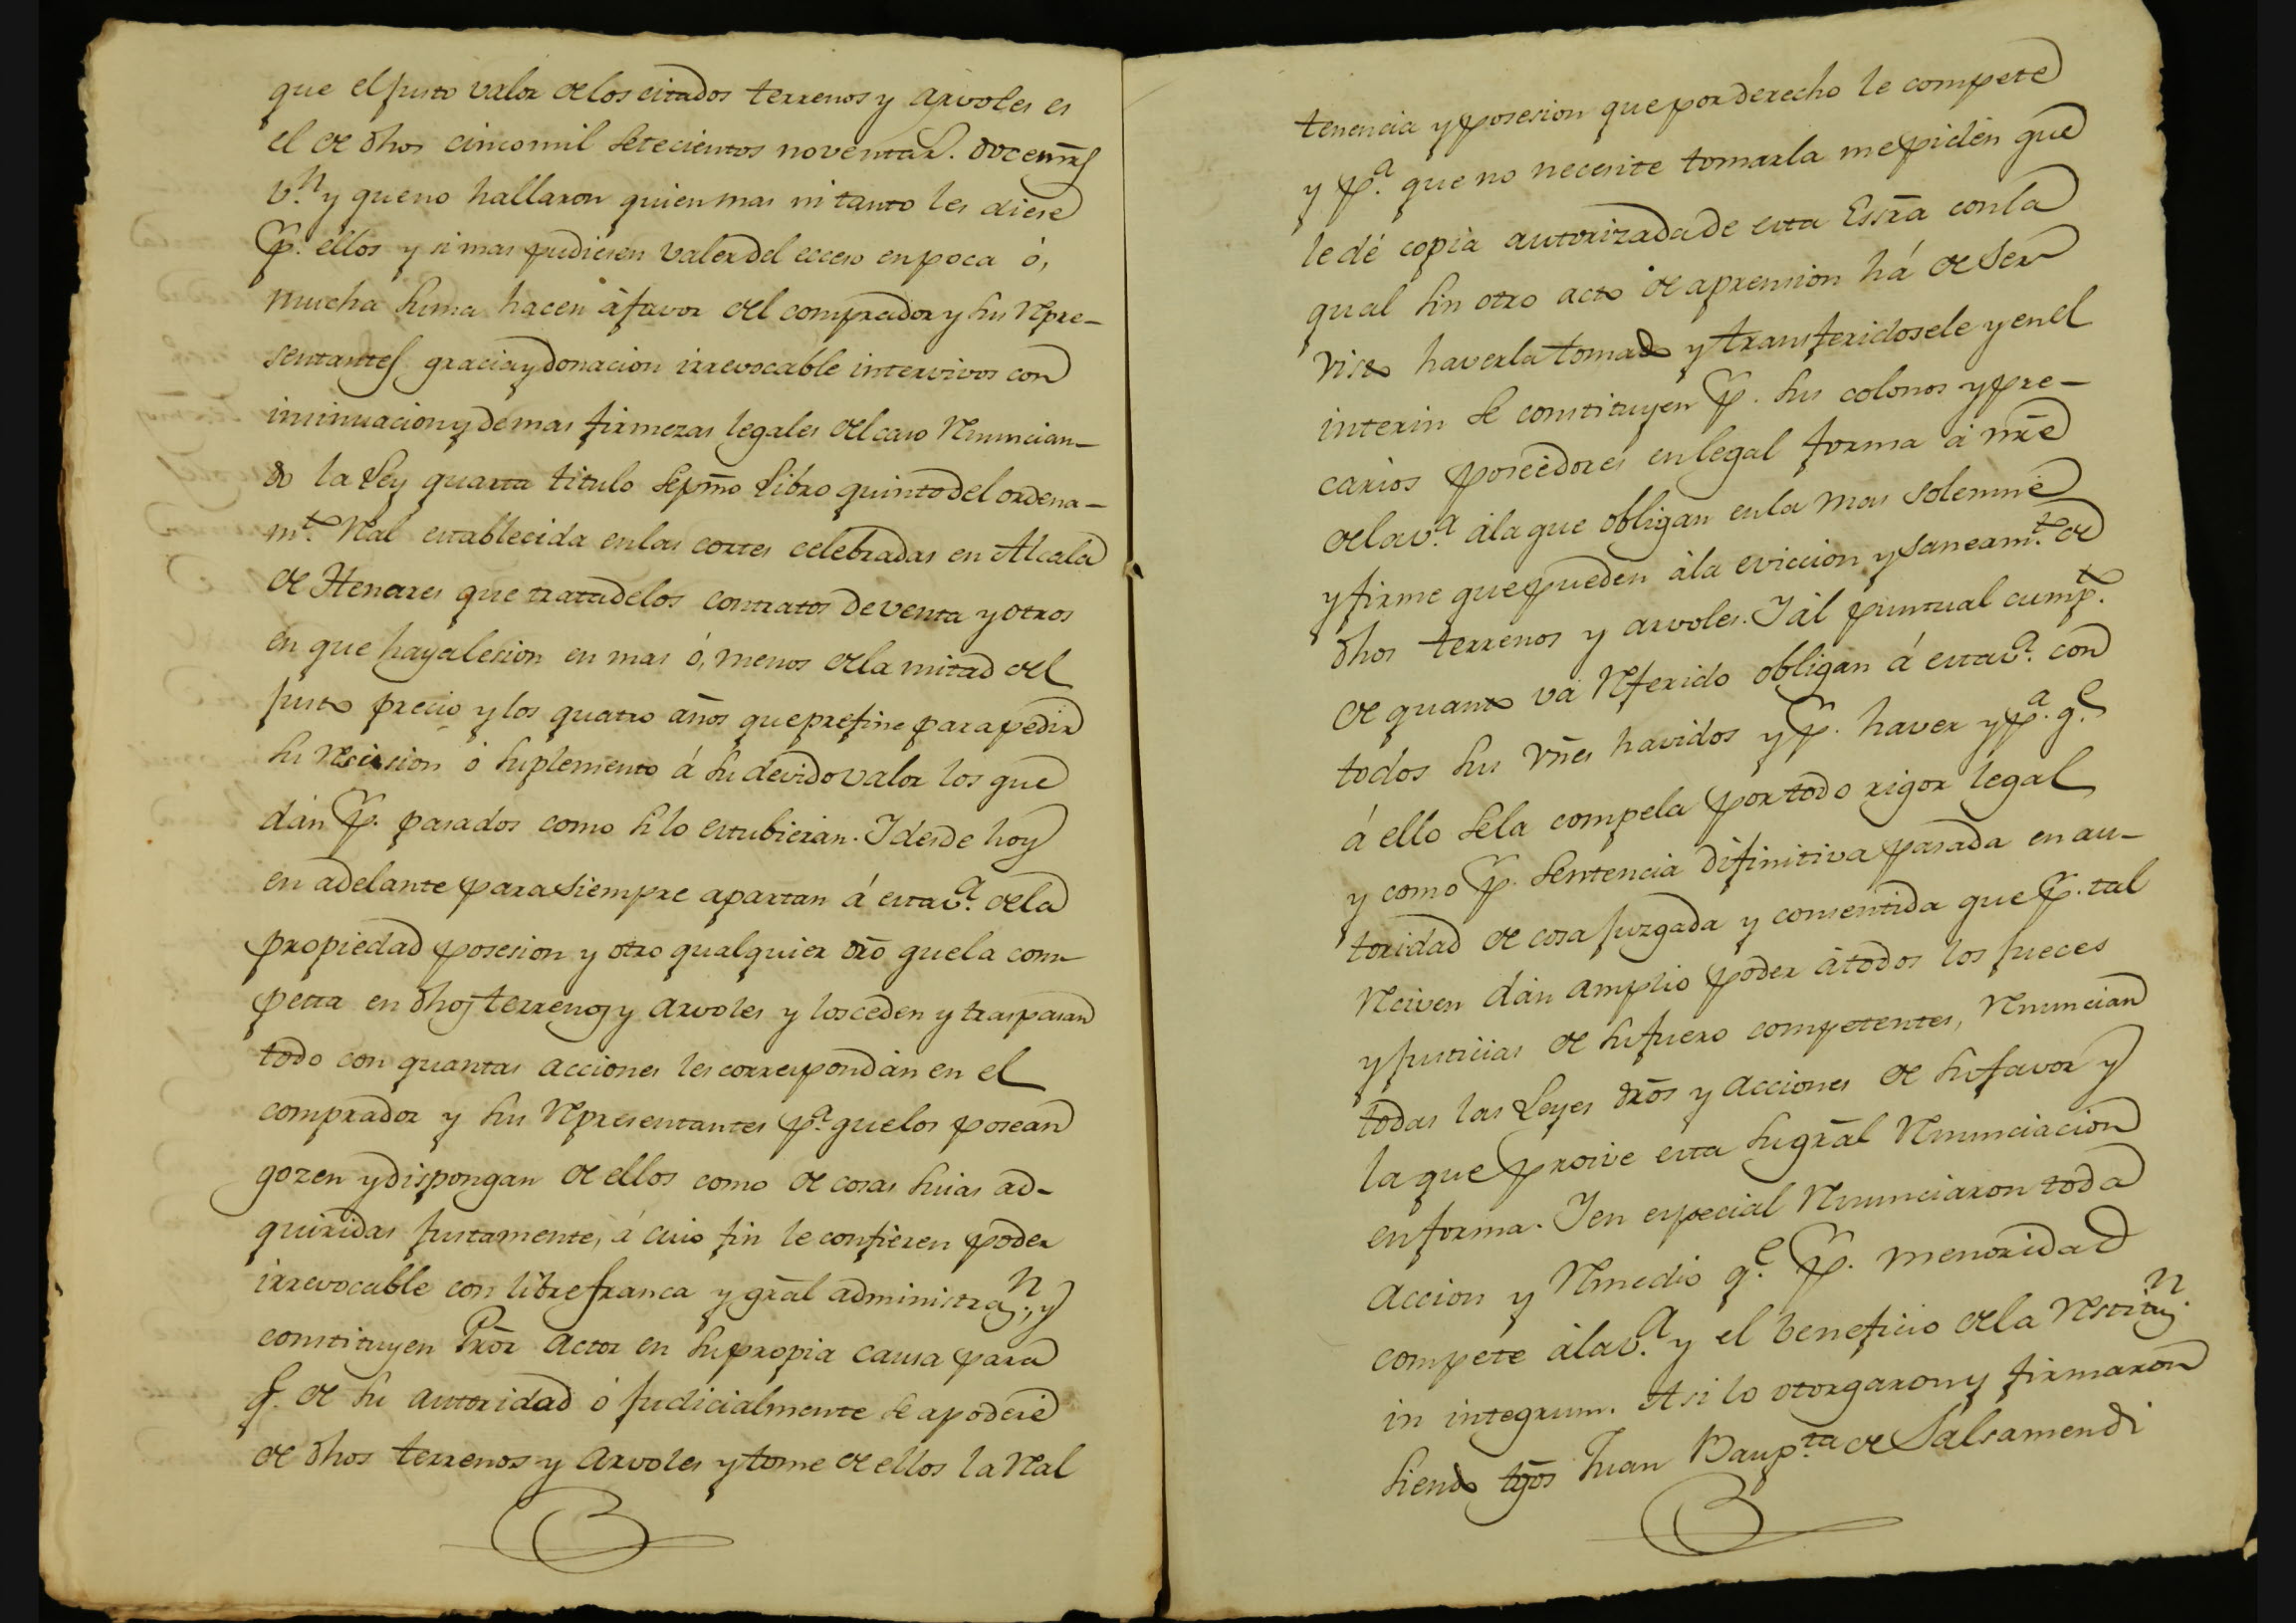 que el justo valor de los citados terrenos y arvoles es
el de dhos cinco mil setecientos noventa r.s doce mrs
v.n y que no hallaron quien mas ni tanto les diese
p.r ellos y si mas pudiesen valer del ecceso en poca ó,
mucha suma hacen á favor del comprador y sus Repre-
sentantes gracia y donacion irrevocable intervivos con
insinuacion y demas firmezas legales del caso Renuncian-
do la Ley quarta titulo septmo Libro quinto del ordena-
m.to Real establecida en las cortes celebradas en Alcala
de Henares que trata de los contratos de venta y otros
en que haya lesion en mas ó, menos de la mitad del
justo precio y los quatro años que prefine para pedir
su Rescision ó suplemento á su devido valor los que
dán p.r pasados como si lo estubieran. I desde hoy
en adelante para siempre apartan á esta v.a de la
propiedad posesion y otro qualquier dro que la com-
petta en dhos terrenos y arvoles y los ceden y traspasan
todo con quantas acciones les correspondan en el
comprador y sus Representantes p.a que los posean
gozen y dispongan de ellos como de cosas suias ad-
quiridas justamente, á cuio fin le confieren poder
irrevocable con libre franca y gral administra.n, y
constituyen Pror actor en su propia causa para
q. de su autoridad ó judicialmente se apodere
de dhos terrenos y arvoles y tome de ellos la Real
tenencia y posesion que por derecho le compete
y p.a que no necesite tomarla me piden que
le dé copia autorizada de esta Essra con la
qual sin otro acto de aprension há de ser
visto haverla tomado y transferidosele y en el
interin se constituyen p.r sus colonos y pre-
carios poseedores en legal forma á nre
de la v.a á la que obligan en la mas solemne
y firme que pueden á la eviccion y saneam.to de
dhos terrenos y arvoles. I al puntual cump.to
de quanto vá Referido obligan á esta v.a con
todos sus vnes havidos y p.r haver y p.a q.e
á ello se la compela por todo rigor legal
y como p.r sentencia difinitiva pasada en au-
toridad de cosa juzgada y consentida que p.r tal
Reciven dán amplio poder á todos los jueces
y justicias de su fuero competentes, Renuncian
todas las Leyes dros y acciones de su favor y
la que proive esta su gral Renunciacion
en forma. I en especial Renunciaron toda
accion y Remedio q.e p.r menoridad
compete á la v.a y el beneficio de la Restitu.n
in integrum. Asi lo otorgaron y firmaron
siendo tgos Juan Baup.ta de Salsamendi